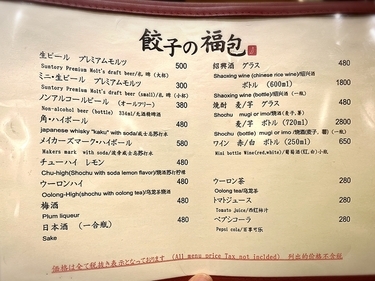 餃子の福包
生ビール プレミアムモルツ 500
Suntory Premium Molt's draft beer/生 啤 (大杯)
ミニ・生ビール プレミアムモルツ 300
Suntory Premium Molt's draft beer(small)/生 啤 (小杯)
ノンアルコールビール (オールフリー) 380
Non-alcohol beer (bottle) 334ml/无酒精啤酒
角・ハイボール 480
japanese whisky "kaku" with soda/威士忌苏打水
メイカーズマーク・ハイボール 580
Makers mark with soda/波旁威士忌苏打水
チューハイ レモン 480
Chu-high(Shochu with soda lemon flavor)/烧酒苏打柠檬
ウーロンハイ 480
Oolong-High(shochu with oolong tea)/乌龙茶烧酒
梅酒 480
Plum liqueur
日本酒 (一合瓶) 480
Sake
紹興酒 グラス 480
Shaoxing wine (chinese rice wine)/绍兴酒
ボトル (600ml) 1800
Shaoxing wine (bottle)/绍兴酒 (一瓶)
焼酎 麦/芋 グラス 480
Shochu mugi or imo/烧酒(麦子,薯)
麦/芋 ボトル (720ml) 2800
Shochu (bottle) mugi or imo/烧酒(麦子、薯) (一瓶)
ワイン 赤/白 ボトル (250ml) 650
Mini bottle Wine(red,white)/葡萄酒(红,白)小瓶
ウーロン茶 280
Oolong tea/乌龙茶
トマトジュース 280
Tomato juice/西红柿汁
ペプシコーラ 280
Pepsi cola/百事可乐
価格は全て税抜き表示となっております (All menu price Tax not inclded) 列出的价格不含税